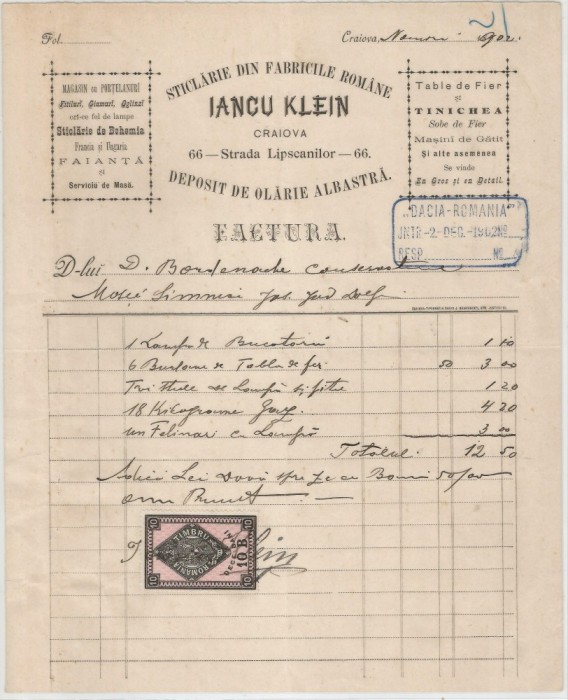 Fol.
Craiova, 1902.
MAGASIN cu PORŢELANURI
Titluri, Giamuri, Oglinzi
ort-ce fel de lampe
Sticlărie de Bohemia
Francia şi Ungaria
FAIANŢĂ
şi
Serviciu de Masă.
STICLĂRIE DIN FABRICILE ROMÂNE
IANCU KLEIN
CRAIOVA
66 — Strada Lipscanilor — 66.
DEPOSIT DE OLĂRIE ALBASTRĂ.
Table de Fier
şi
TINICHEA
Sobe de Fier
Maşini de Gătit
Şi alte asemenea
Se vinde
En Gros şi en Detail.
"DACIA-ROMANIA"
INTR-2-DEC.-1902 No
RESP. No
FACTURA.
D-lui D. conservator
Moşie Simnicu Jos. Jud Dolj.
1 Lampă de Bucatarie 1 10
6 Burlane de Tabla de fer 50 3 00
Trei sticle de Lampă şi fitile 1 20
18 Kilograme Gaz. 4 20
un Felinar cu Lampă 3 00
Totalul 12 50
Adică Lei Două spre zece Bani 50/00
am Primit
10 10
TIMBRU
ROMANIA
DECEMB
10 B.
10 10